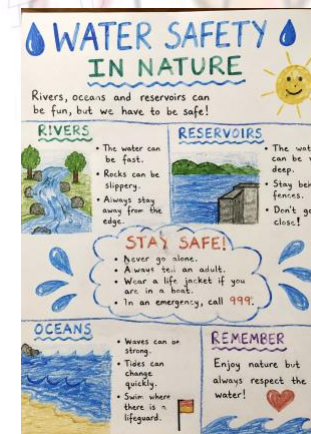 WATER SAFETY
IN NATURE
Rivers, oceans and reservoirs can
be fun, but we have to be safe!
RIVERS
• The water can
be fast.
• Rocks can be
slippery.
• Always stay
away from the
edge.
RESERVOIRS
• The
can be
deep.
• Stay
fences.
• Don't
close!
STAY SAFE!
• Never go alone.
• Always tell an adult.
• Wear a life jacket if you
are in a boat.
• In an emergency, call 999.
OCEANS
• Waves can
strong.
• Tides can
change
quickly.
• Swim where
there is
lifeguard.
REMEMBER
Enjoy nature but
always respect the
water!